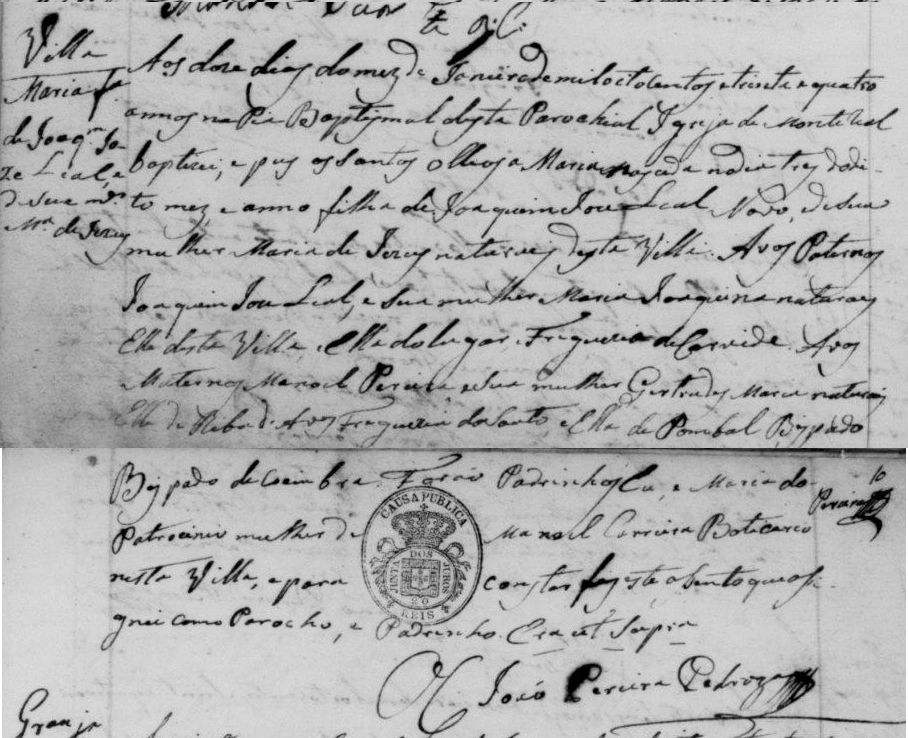 Villa
Maria f.
de Joaq.m Jo-
ze Leal, e
de sua m.er
M.a de Jezus
Aos doze dias do mez de Janeiro de mil oitocentos e trinta e quatro
annos na Pia Baptysmal desta Parochial Igreja de Monte Real
baptizei, e puz os Santos Oleos a Maria nascida no dia tres do di-
to mez, e anno filha de Joaquim Joze Leal Novo, e de sua
mulher Maria de Jezus naturaes desta Villa. Avos Paternos
Joaquim Joze Leal, e sua mulher Maria Joaquina naturaes
Elle desta Villa, e Ella do lugar, e Freguezia de Carvide. Avos
Maternos Manoel Pereira e sua mulher Gertrudes Maria naturaes
Elle de Riba d'Aves Freguezia do Souto, e Ella de Pombal Bispado
Bispado de Coimbra. Forão Padrinhos Eu, e Maria do
Patrocinio mulher de Manoel Carreira Boticario
nesta Villa, e para constar fiz este assento que assi-
gnei como Parocho, e Padrinho. Era ut Supra
O C. João Pereira Pedroza
CAUSA PUBLICA
JUNTA DOS JUROS
20
REIS
Granja